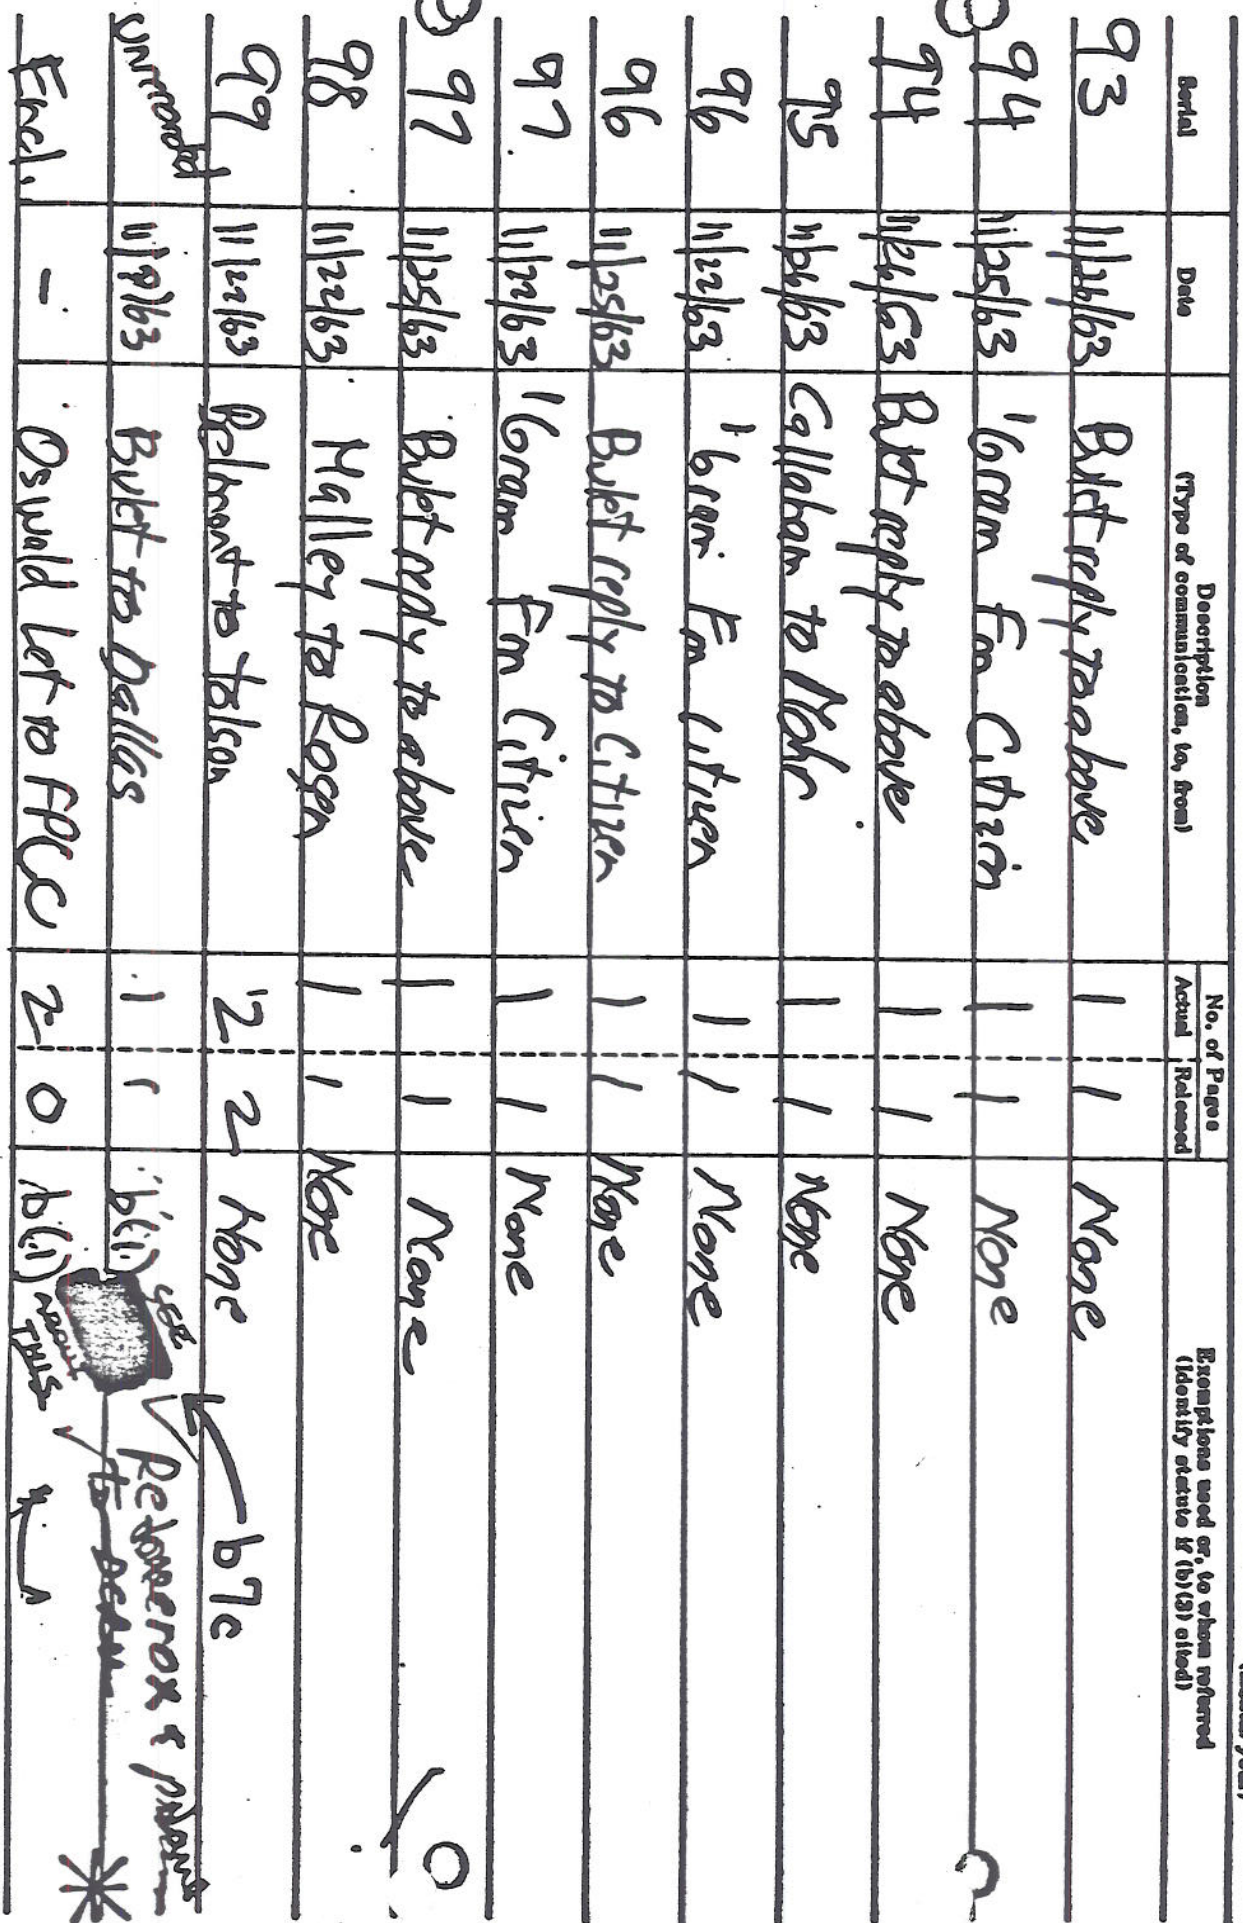 Serial Date Description (Type of communication, to, from) No. of Pages Actual Released Exemptions used or, to whom referred (Identify statute if (b)(3) cited)
93 11/26/63 Bulet reply to above 1 1 None
94 11/25/63 1'Gram Fm Citizen 1 1 None
94 11/26/63 Bulet reply to above 1 1 None
95 11/26/63 Callahan to Mohr 1 1 None
96 11/22/63 1'Gram Fm Citizen 1 1 None
96 11/25/63 Bulet reply to Citizen 1 1 None
97 11/22/63 1'Gram Fm Citizen 1 1 None
97 11/25/63 Bulet reply to above 1 1 None
98 11/22/63 Malley to Rosen 1 1 None
99 11/22/63 Belmont to Tolson 2 2 None b7c
unrecorded 11/8/63 Bulet to Dallas 1 1 b(1) Rexerox &
Encl. - Oswald Let to FPCC 2 0 b(1) THIS